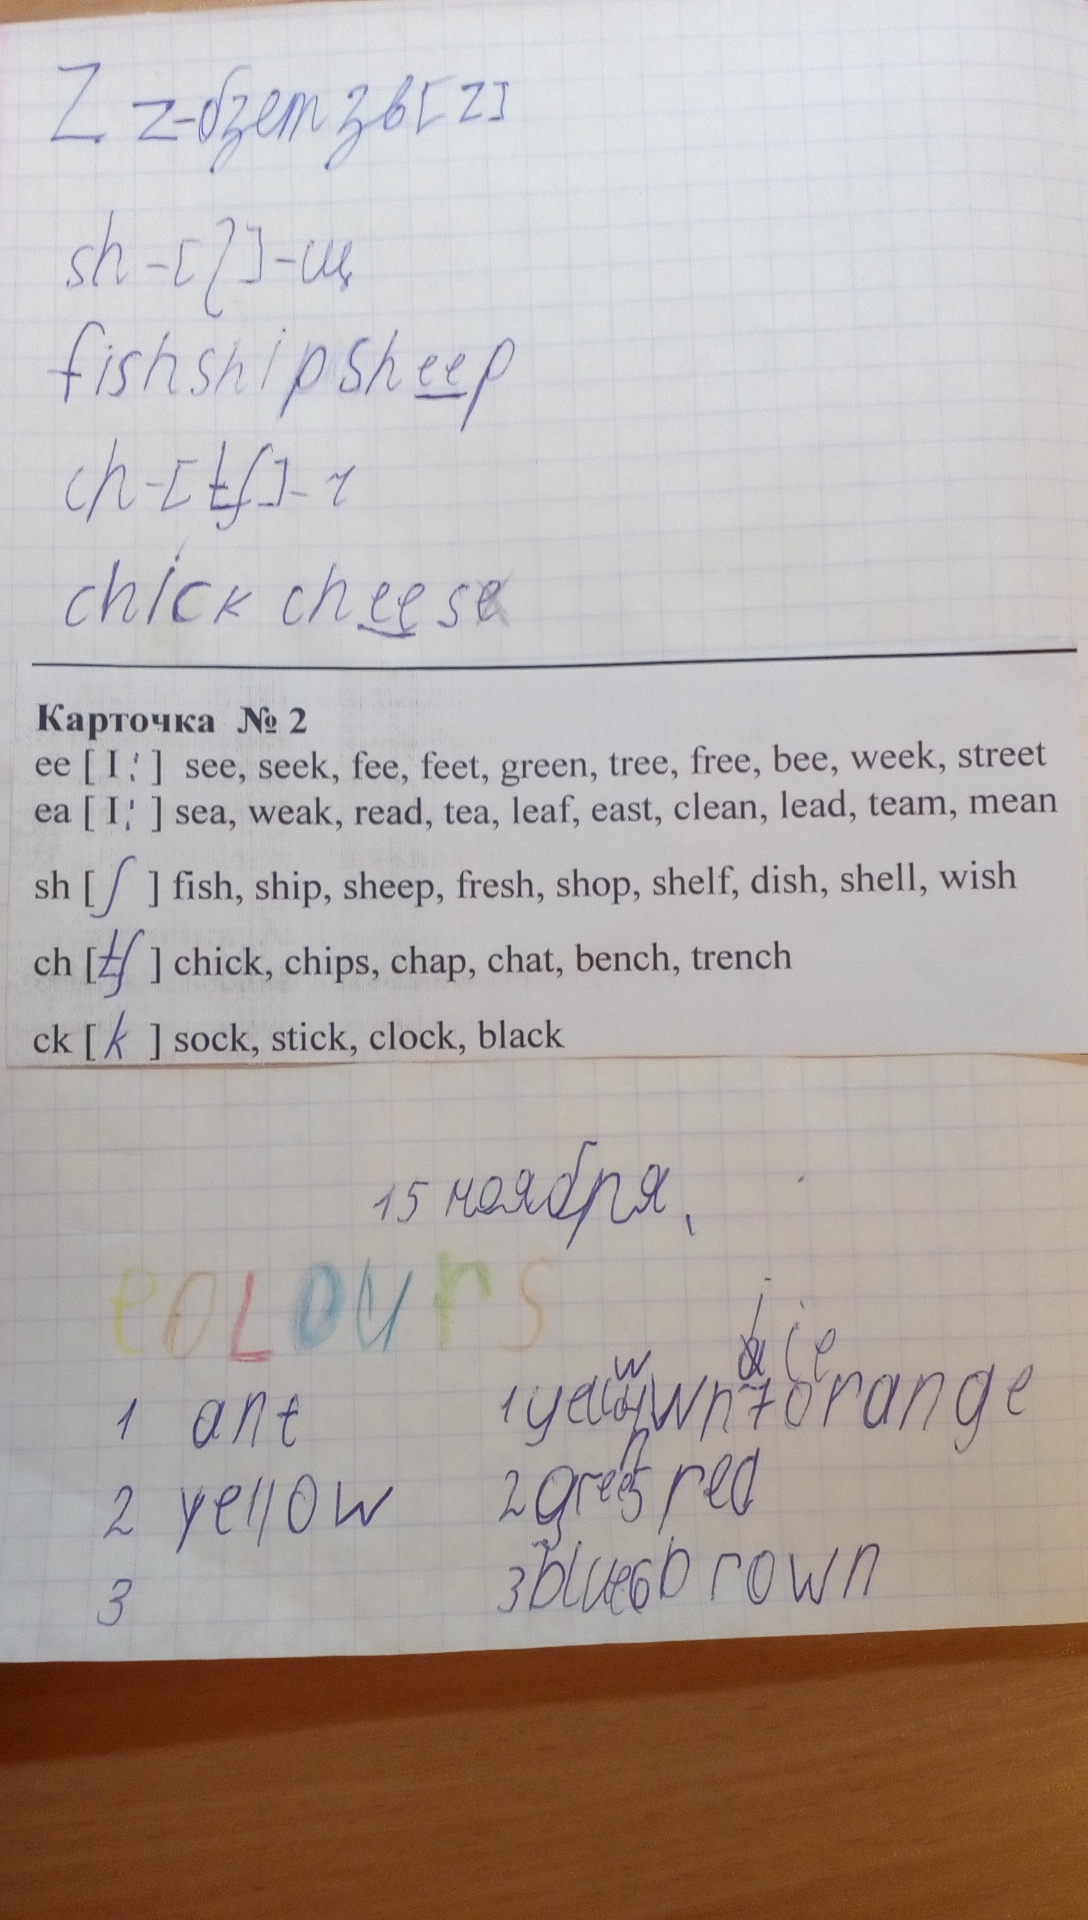 Z z-бзет зв[z]
sh-[ʃ]-щ
fish ship sheep
ch-[tʃ]-ч
chick cheese
Карточка № 2
ee [ I: ] see, seek, fee, feet, green, tree, free, bee, week, street
ea [ I: ] sea, weak, read, tea, leaf, east, clean, lead, team, mean
sh [ ʃ ] fish, ship, sheep, fresh, shop, shelf, dish, shell, wish
ch [ tʃ ] chick, chips, chap, chat, bench, trench
ck [ k ] sock, stick, clock, black
15 ноября.
coLours
1 ant
2 yellow
3
1 orange
2 green 5 red
3 blue 6 brown